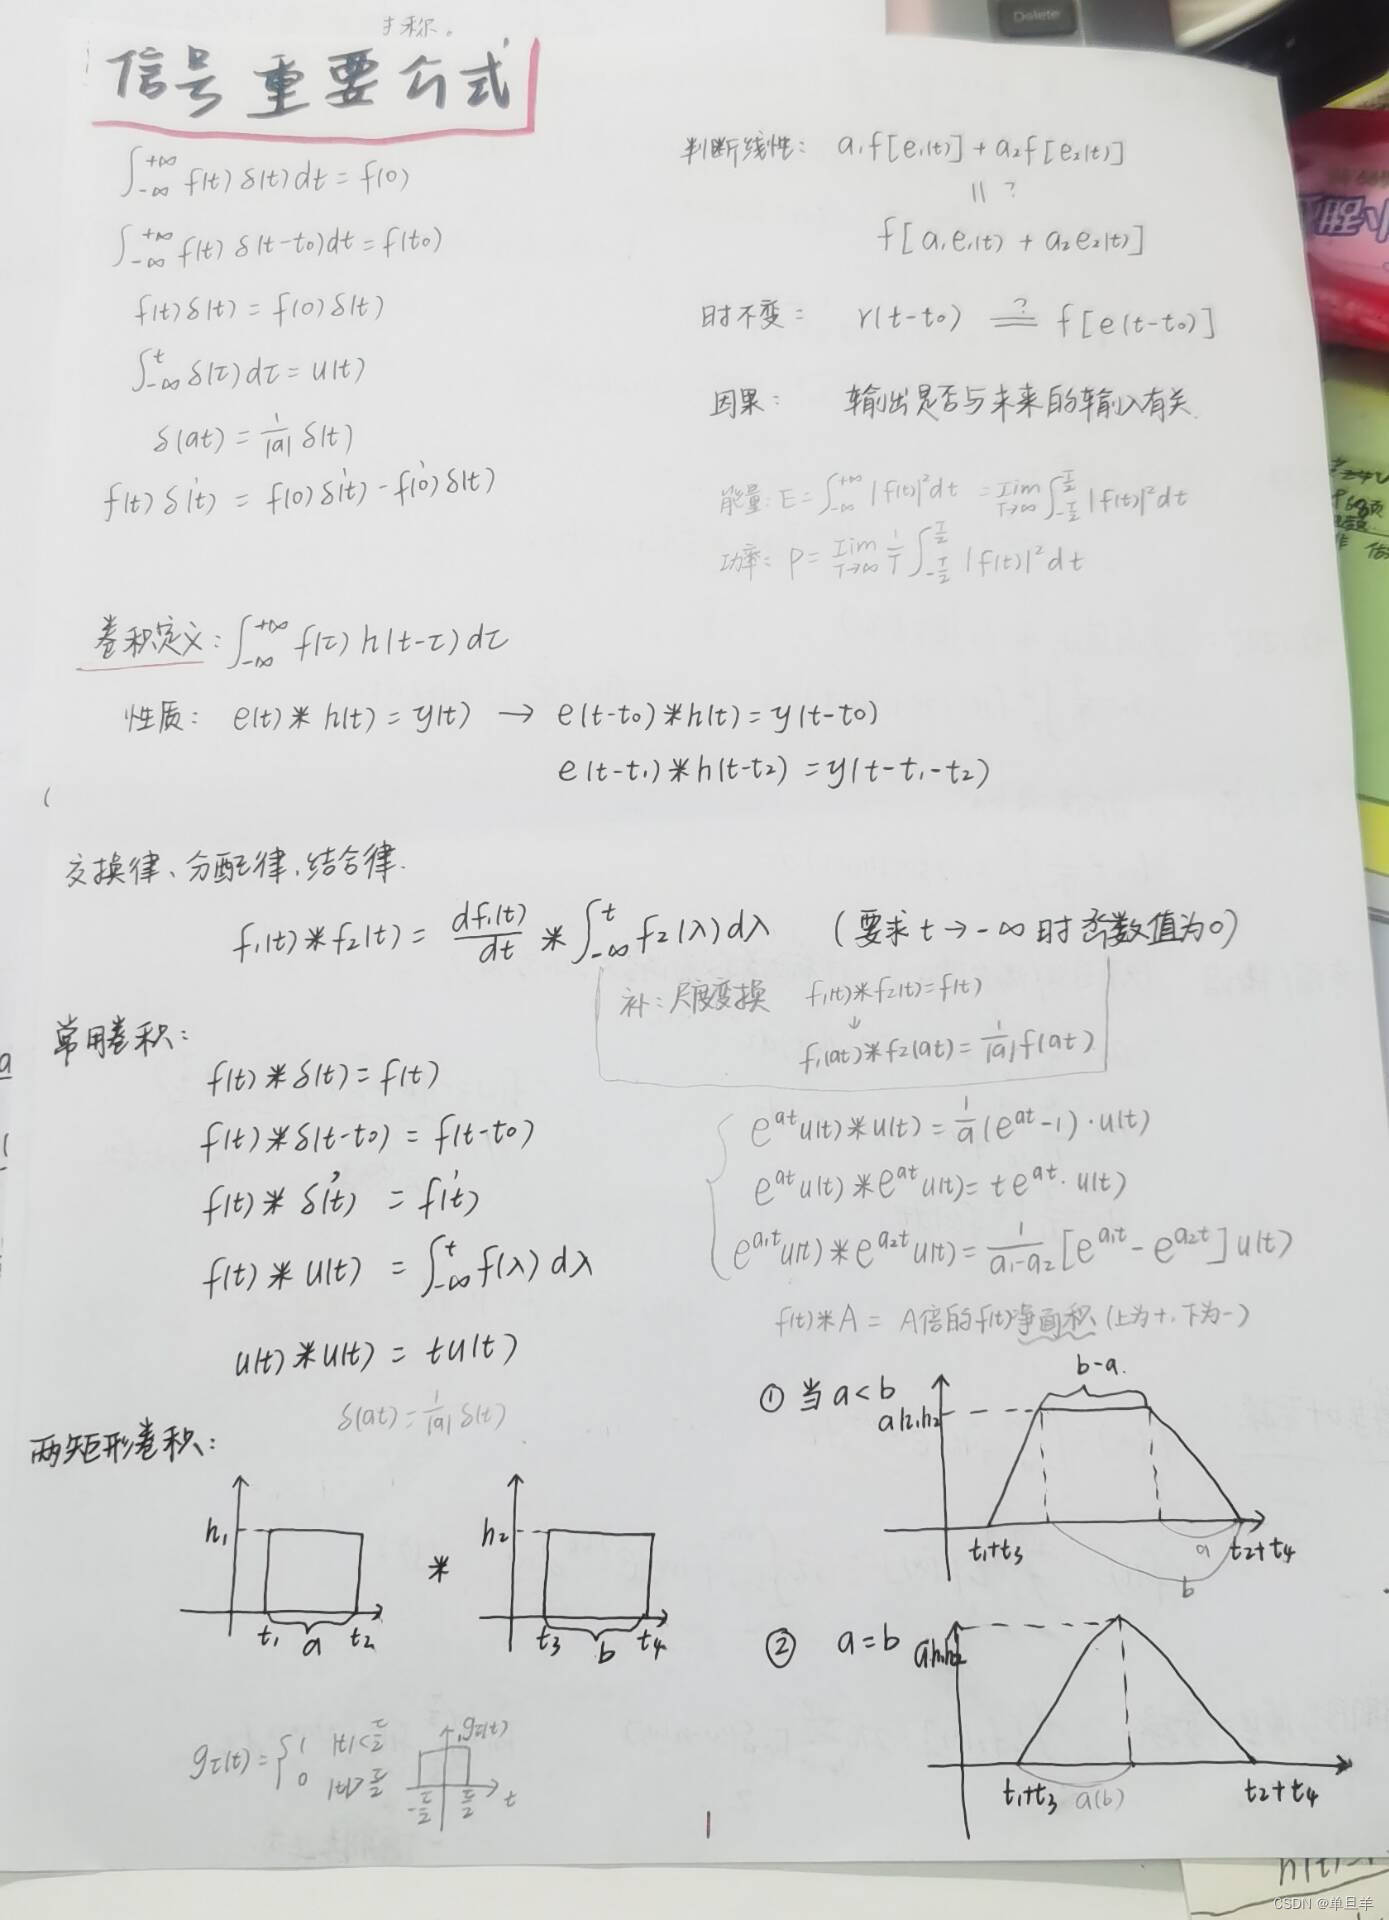 Delete
称。
信号重要公式
∫_{-∞}^{+∞} f(t)δ(t)dt = f(0)
∫_{-∞}^{+∞} f(t)δ(t-t0)dt = f(t0)
f(t)δ(t) = f(0)δ(t)
∫_{-∞}^{t} δ(τ)dτ = u(t)
δ(at) = 1/|a| δ(t)
f(t)δ'(t) = f(0)δ'(t) - f'(0)δ(t)
判断线性: a1f[e1(t)] + a2f[e2(t)]
|| ?
f[a1e1(t) + a2e2(t)]
时不变: r(t-t0) =?= f[e(t-t0)]
因果: 输出是否与未来的输入有关.
能量: E = ∫_{-∞}^{+∞} |f(t)|²dt = lim_{T→∞} ∫_{-T/2}^{T/2} |f(t)|²dt
功率: P = lim_{T→∞} 1/T ∫_{-T/2}^{T/2} |f(t)|²dt
卷积定义: ∫_{-∞}^{+∞} f(τ)h(t-τ)dτ
性质: e(t)*h(t) = y(t) → e(t-t0)*h(t) = y(t-t0)
e(t-t1)*h(t-t2) = y(t-t1-t2)
交换律、分配律、结合律.
f1(t)*f2(t) = df1(t)/dt * ∫_{-∞}^{t} f2(λ)dλ (要求t→-∞时函数值为0)
补: 尺度变换 f1(t)*f2(t)=f(t)
↓
f1(at)*f2(at) = 1/|a| f(at)
常用卷积:
f(t)*δ(t) = f(t)
f(t)*δ(t-t0) = f(t-t0)
f(t)*δ'(t) = f'(t)
f(t)*u(t) = ∫_{-∞}^{t} f(λ)dλ
u(t)*u(t) = tu(t)
δ(at) = 1/|a| δ(t)
e^{at}u(t)*u(t) = 1/a (e^{at}-1)·u(t)
e^{at}u(t)*e^{at}u(t) = te^{at}·u(t)
e^{a1t}u(t)*e^{a2t}u(t) = 1/(a1-a2) [e^{a1t} - e^{a2t}]u(t)
f(t)*A = A倍的f(t)净面积(上为+,下为-)
两矩形卷积:
h1
t1 a t2
*
h2
t3 b t4
① 当a<b
b-a
ah1h2
t1+t3 a t2+t4
b
② a=b
ah1h2
t1+t3 a(b) t2+t4
gτ(t) = { 1 |t|<τ/2
0 |t|>τ/2
1 gτ(t)
-τ/2 τ/2 t
CSDN @单旦羊